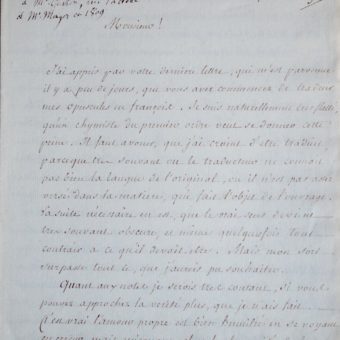 à Mr
à Mr Mayr en 1809
Monsieur!
J'ai appris par votre dernière lettre, qui m'est parvenue
il y a peu de jours, que vous avez commencé de traduire
mes opuscules en françois. Je suis naturellement très flatté,
qu'un chymiste du premier ordre veut se donner cette
peine. Il faut avouer, que j'ai craint d'etre traduit
parceque tres souvent ou le traducteur ne connoit
pas bien la langue de l'original, ou il n'est pas assez
versé dans la matière, qui fait l'objet de l'ouvrage.
La suite nécessaire en est, que le vrai sens devient
tres souvent obscur, et même quelquefois tout
contraire à ce qu'il devoit etre. Mais mon sort
surpasse tout ce, que j'aurois pu souhaiter.
Quant aux notes je serois tres content, si vous
pouvez approcher la verité plus, que je n'ais fait
l'amour propre est bien humilié en se voyant